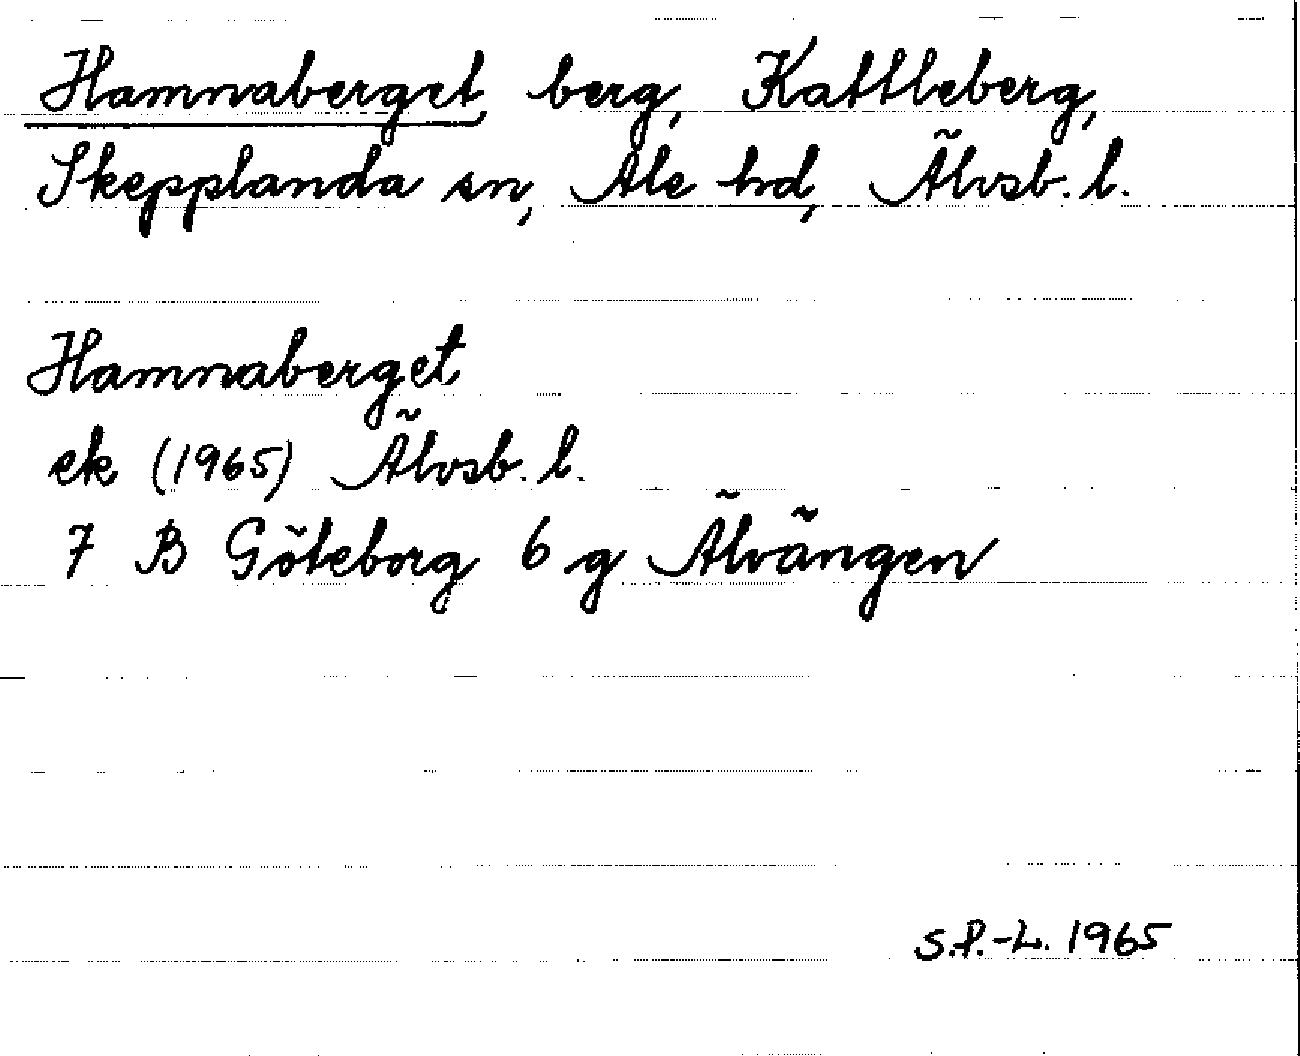 Hamnaberget, berg, Kattleberg,
Skepplanda sn, Ale hd, Älvsb. l.
Hamnaberget
ek (1965) Älvsb. l.
7 B Göteborg 6 g Älvängen
S.P.-L. 1965